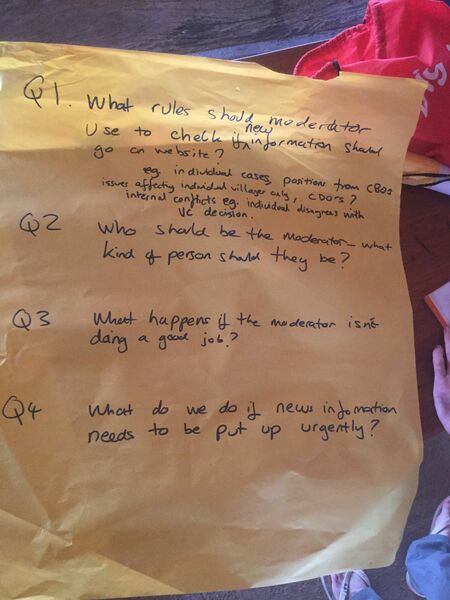 Q1. What rules should moderator
use to check if new information should
go on website?
eg. individual cases, position from CBOs
issues affecting individual villager only, CDOrs?
internal conflicts eg. individual disagrees with
VC decision.
Q2 Who should be the moderator - what
kind of person should they be?
Q3 What happens if the moderator isn't
doing a good job?
Q4 What do we do if news information
needs to be put up urgently?